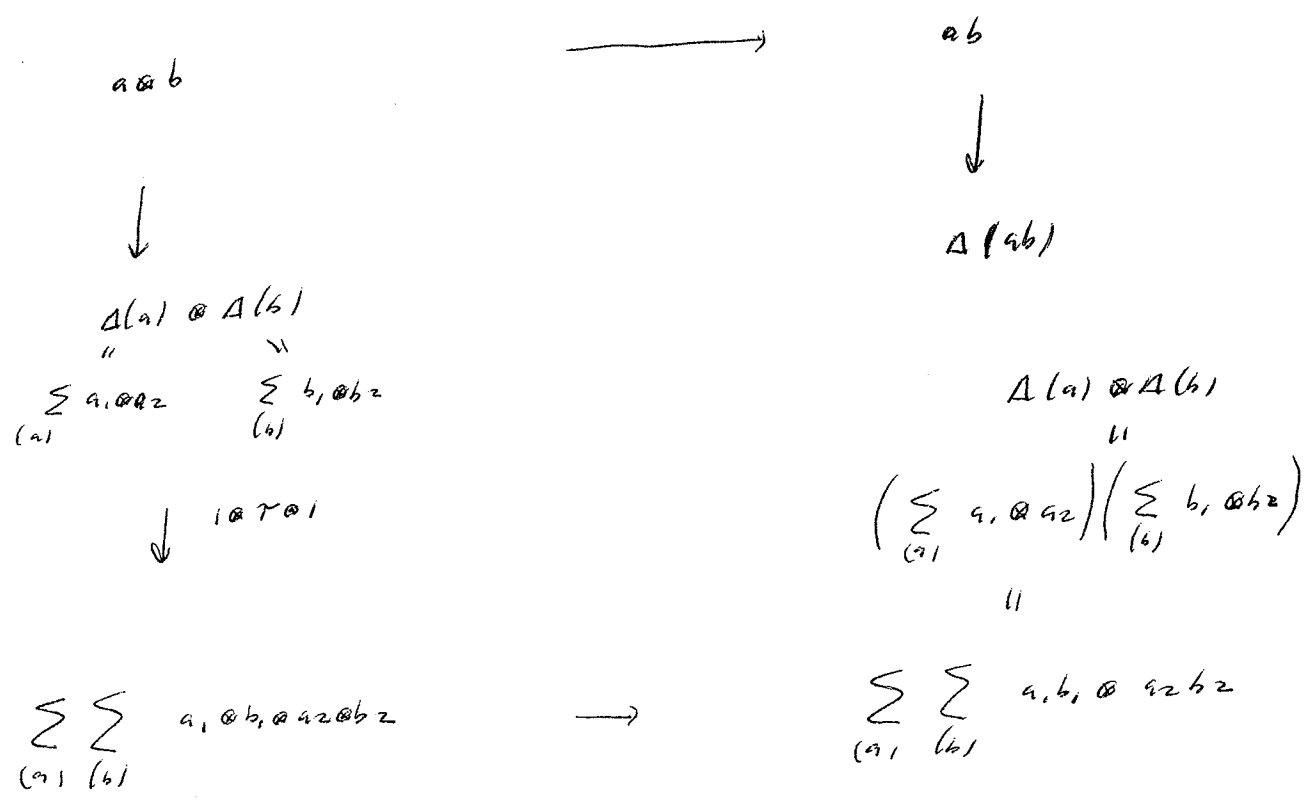 a ⊗ b ⟶ ab
↓ ↓
Δ(ab)
Δ(a) ⊗ Δ(b)
|| ||
∑_(a) a₁⊗a₂ ∑_(b) b₁⊗b₂
Δ(a) ⊗ Δ(b)
||
↓ 1⊗τ⊗1
(∑_(a) a₁ ⊗ a₂)(∑_(b) b₁ ⊗ b₂)
||
∑_(a) ∑_(b) a₁⊗b₁⊗a₂⊗b₂ ⟶ ∑_(a) ∑_(b) a₁b₁ ⊗ a₂b₂